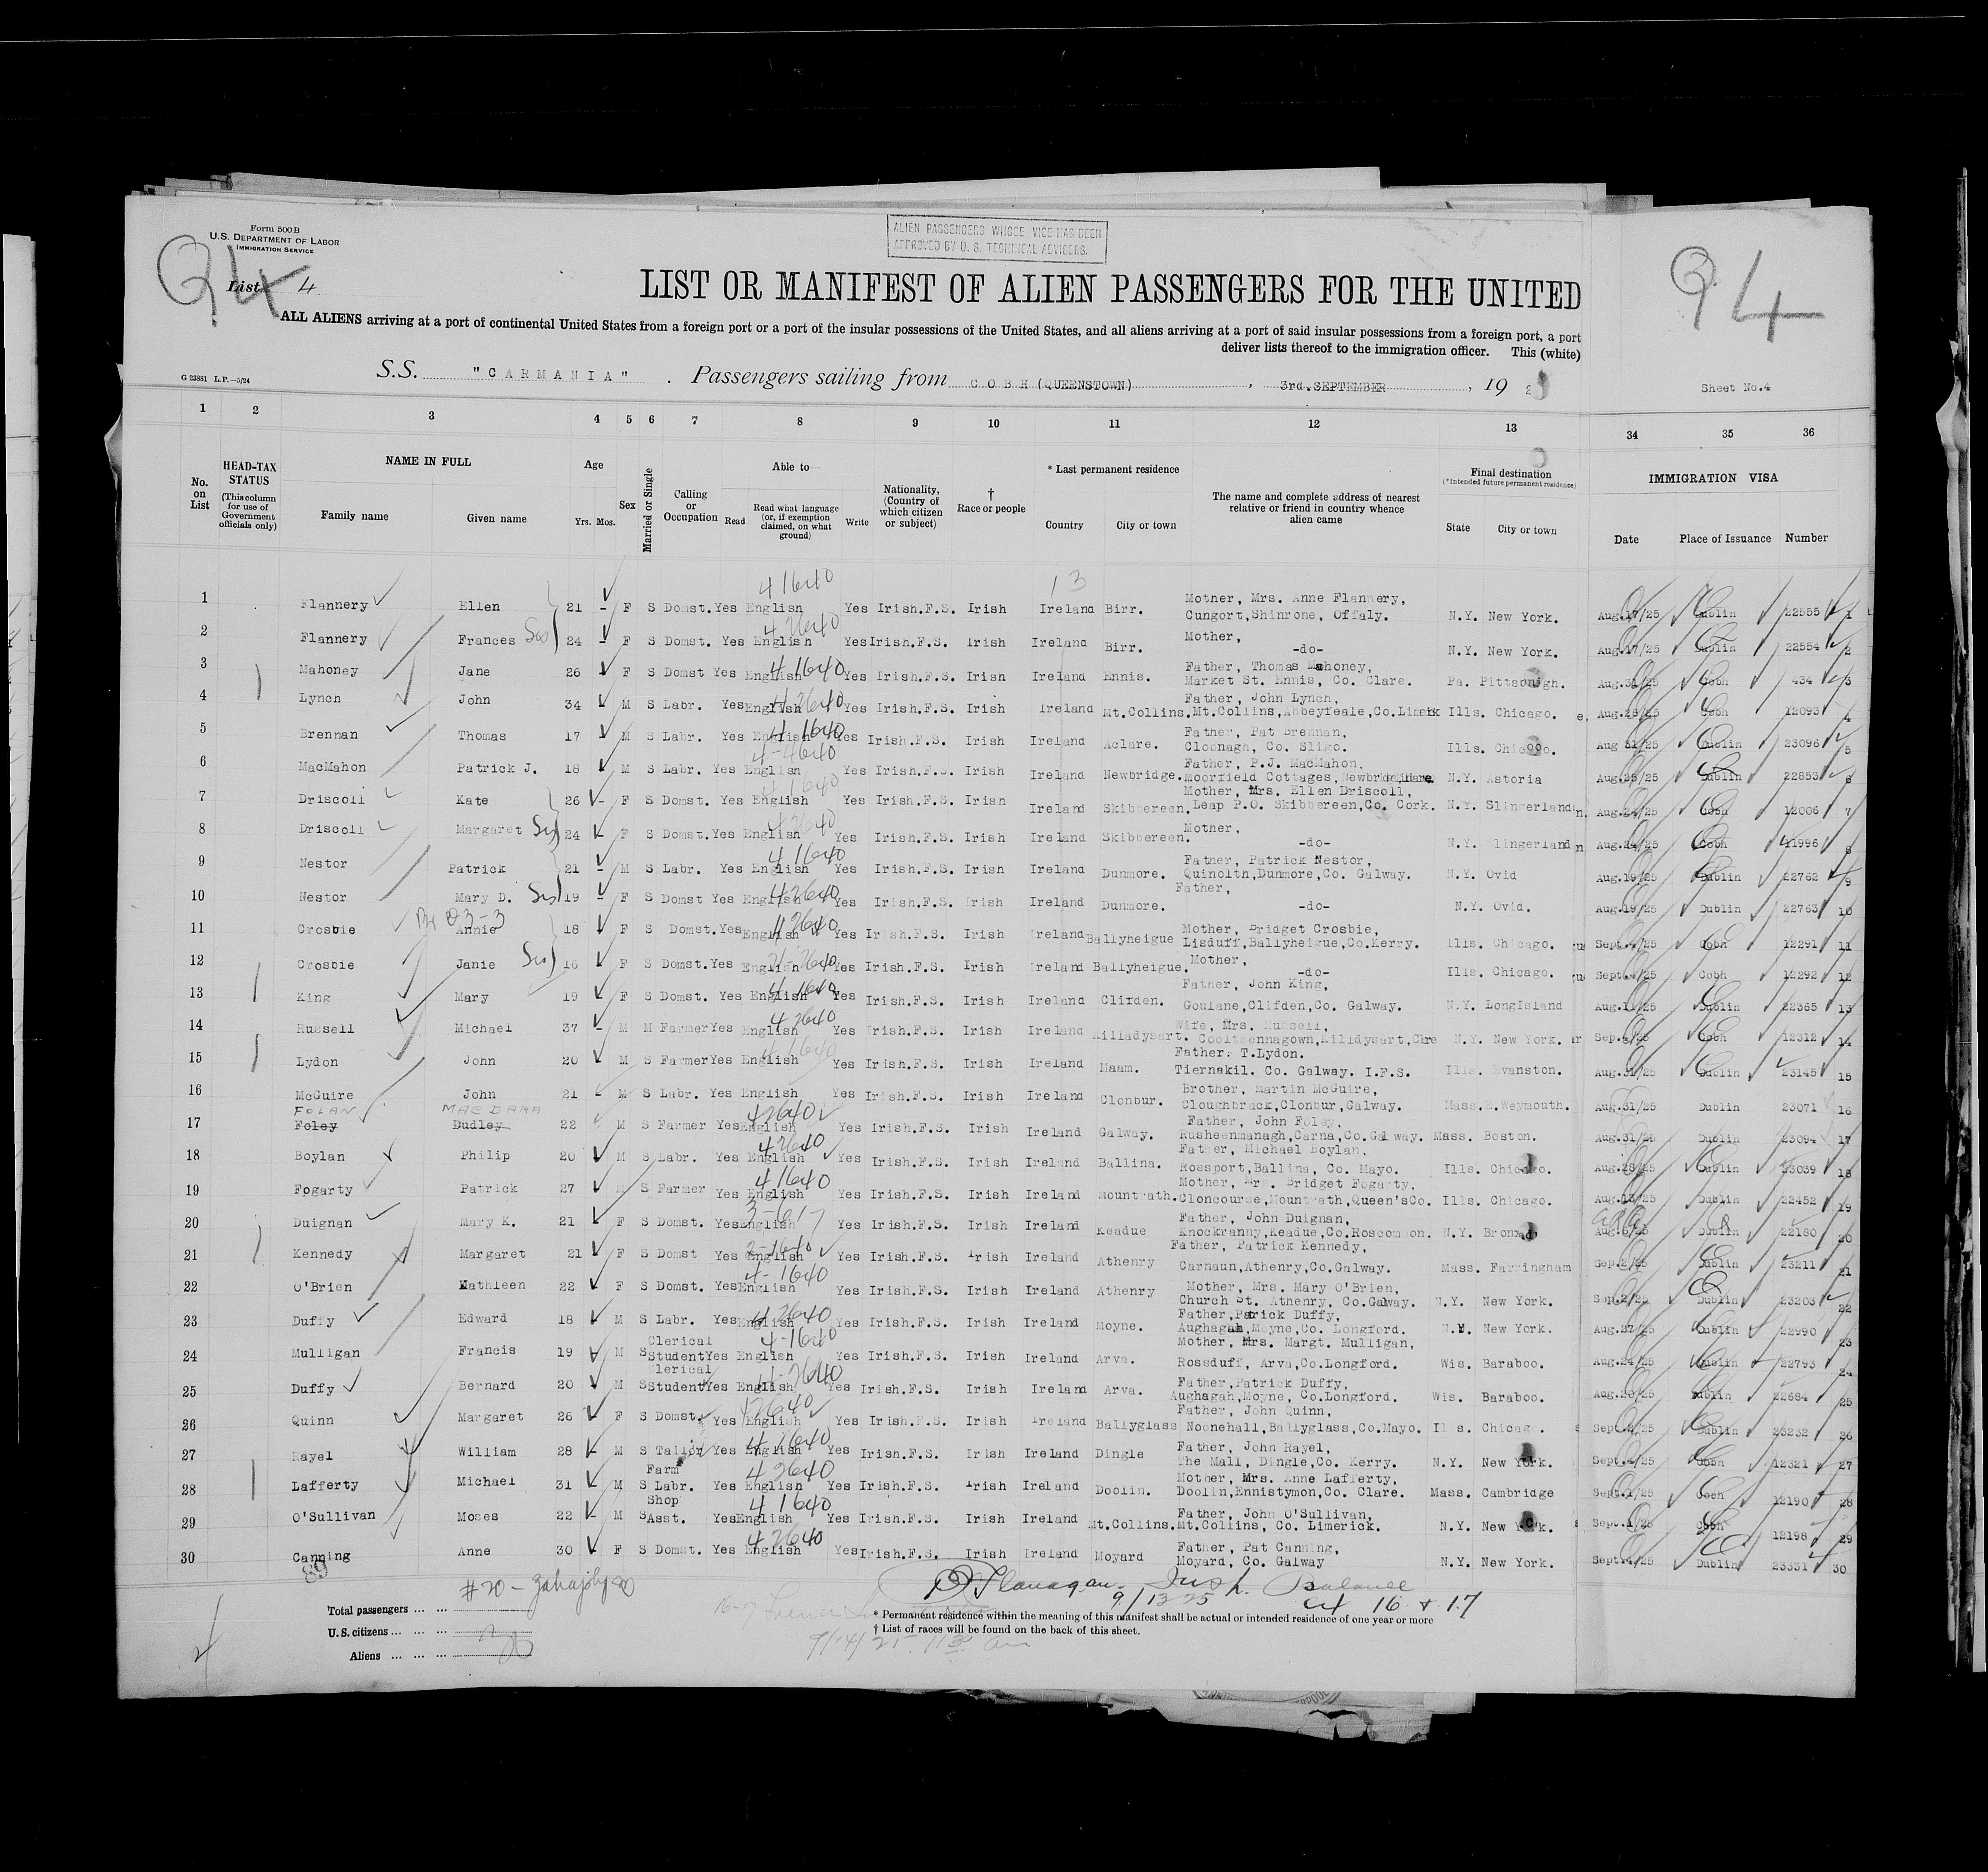 Form 500B
U.S. DEPARTMENT OF LABOR
IMMIGRATION SERVICE
ALIEN PASSENGERS WHOSE VICE HAS BEEN
APPROVED BY U. S. TECHNICAL ADVISERS.
94
List 4
94
LIST OR MANIFEST OF ALIEN PASSENGERS FOR THE UNITED
ALL ALIENS arriving at a port of continental United States from a foreign port or a port of the insular possessions of the United States, and all aliens arriving at a port of said insular possessions from a foreign port, a port
deliver lists thereof to the immigration officer. This (white)
G 23881 L.P.—5/24
S.S. "CARMANIA". Passengers sailing from COBH (QUEENSTOWN), 3rd.SEPTEMBER, 19 2
Sheet No.4
1 2 3 4 5 6 7 8 9 10 11 12 13 34 35 36
No. on List
HEAD-TAX STATUS (This column for use of Government officials only)
NAME IN FULL
Family name Given name
Age Yrs. Mos.
Sex
Married or Single
Calling or Occupation
Able to
Read Read what language (or, if exemption claimed, on what ground) Write
Nationality, (Country of which citizen or subject)
† Race or people
* Last permanent residence
Country City or town
The name and complete address of nearest relative or friend in country whence alien came
Final destination
(*Intended future permanent residence)
State City or town
IMMIGRATION VISA
Date Place of Issuance Number
1 Flannery Ellen 21 - F S Domst. Yes English Yes Irish.F.S. Irish Ireland Birr. Mother, Mrs. Anne Flannery, Cungort,Shinrone, Offaly. N.Y. New York. Aug.17/25 Dublin 22555 1
2 Flannery Frances Sis 24 - F S Domst. Yes English Yes Irish.F.S. Irish Ireland Birr. Mother, -do- N.Y. New York. Aug.17/25 Dublin 22554 2
3 Mahoney Jane 26 F S Domst Yes English Yes Irish.F.S. Irish Ireland Ennis. Father, Thomas Mahoney, Market St. Ennis, Co. Clare. Pa. Pittsburgh. Aug.31/25 Cobh 434 3
4 Lynch John 34 M S Labr. Yes English Yes Irish.F.S. Irish Ireland Mt.Collins. Father, John Lynch, Mt.Collins,Abbeyfeale,Co.Limerik Ills. Chicago. Aug.28/25 Cobh 12093 4
5 Brennan Thomas 17 M S Labr. Yes English Yes Irish.F.S. Irish Ireland Aclare. Father, Pat Brennan, Cloonagh, Co. Sligo. Ills. Chicago. Aug 31/25 Dublin 23096 5
6 MacMahon Patrick J. 18 M S Labr. Yes English Yes Irish.F.S. Irish Ireland Newbridge. Father, P.J. MacMahon, Moorfield Cottages,Newbridge N.Y. Astoria Aug.25/25 Dublin 22853 6
7 Driscoll Kate 26 - F S Domst. Yes English Yes Irish.F.S. Irish Ireland Skibbereen. Mother, Mrs. Ellen Driscoll, Leap P.O. Skibbereen,Co. Cork. N.Y. Slingerland Aug.24/25 Cobh 12006 7
8 Driscoll Margaret Sis 24 - F S Domst. Yes English Yes Irish.F.S. Irish Ireland Skibbereen. Mother, -do- N.Y. Slingerland Aug.24/25 Cobh 11996 8
9 Nestor Patrick 21 - M S Labr. Yes English Yes Irish.F.S. Irish Ireland Dunmore. Father, Patrick Nestor, Quinolth,Dunmore,Co. Galway. N.Y. Ovid Aug.19/25 Dublin 22762 9
10 Nestor Mary D. Sis 19 - F S Domst Yes English Yes Irish.F.S. Irish Ireland Dunmore. Father, -do- N.Y. Ovid. Aug.19/25 Dublin 22763 10
11 Crosbie Annie 18 F S Domst. Yes English Yes Irish.F.S. Irish Ireland Ballyheigue Mother, Bridget Crosbie, Lisduff,Ballyheigue,Co.Kerry. Ills. Chicago. Sept.4/25 Cobh 12291 11
12 Crosbie Janie Sis 16 F S Domst. Yes English Yes Irish.F.S. Irish Ireland Ballyheigue. Mother, -do- Ills. Chicago. Sept.4/25 Cobh 12292 12
13 King Mary 19 F S Domst. Yes English Yes Irish.F.S. Irish Ireland Clifden. Father, John King, Goulane,Clifden,Co. Galway. N.Y. LongIsland Aug.11/25 Dublin 22365 13
14 Russell Michael 37 - M M Farmer Yes English Yes Irish.F.S. Irish Ireland Killadysart. Wife, Mrs. Russell, Coolteennagown,Killdysart,Clre N.Y. New York. Cobh 12312 14
15 Lydon John 20 M S Farmer Yes English Yes Irish.F.S. Irish Ireland Maam. Father. T.Lydon. Tiernakil. Co. Galway. I.F.S. Ills. Evanston. Aug.31/25 Dublin 23145 15
16 McGuire John 21 M S Labr. Yes English Yes Irish.F.S. Irish Ireland Clonbur. Brother, Martin McGuire, Cloughbrack,Clonbur,Galway. Mass.E.Weymouth. Aug.31/25 Dublin 23071 16
FOLAN MAC DARA
17 Foley Dudley 22 M S Farmer Yes English Yes Irish.F.S. Irish Ireland Galway. Father, John Foley, Rusheenmanagh,Carna,Co.Galway. Mass. Boston. Aug.31/25 Dublin 23094 17
18 Boylan Philip 20 M S Labr. Yes English Yes Irish.F.S. Irish Ireland Ballina. Father, Michael Boylan, Rossport,Ballina, Co. Mayo. Ills. Chicago. Aug.28/25 Dublin 23039 18
19 Fogarty Patrick 27 M S Farmer Yes English Yes Irish.F.S. Irish Ireland Mountrath. Mother, Mrs. Bridget Fogarty, Cloncourse,Mountrath,Queen'sCo. Ills. Chicago. Aug.13/25 Dublin 22452 19
20 Duignan Mary K. 21 F S Domst. Yes English Yes Irish.F.S. Irish Ireland Keadue Father, John Duignan, Knockranny,Keadue,Co.Roscommon. N.Y. Bronx Aug.6/25 Dublin 22180 20
21 Kennedy Margaret 21 F S Domst Yes English Yes Irish.F.S. Irish Ireland Athenry Father, Patrick Kennedy, Carnaun,Athenry,Co.Galway. Mass. Farringham Sep.2/25 Dublin 23211 21
22 O'Brien Kathleen 22 F S Domst. Yes English Yes Irish.F.S. Irish Ireland Athenry Mother, Mrs. Mary O'Brien, Church St. Athenry, Co.Galway. N.Y. New York. Sep.2/25 Dublin 23203 22
23 Duffy Edward 18 M S Labr. Yes English Yes Irish.F.S. Irish Ireland Moyne. Father,Patrick Duffy, Aughagah,Moyne,Co. Longford. N.Y. New York. Aug.27/25 Dublin 22990 23
24 Mulligan Francis 19 M S Clerical Student Yes English Yes Irish.F.S. Irish Ireland Arva. Mother, Mrs. Margt. Mulligan, Rossduff, Arva,Co.Longford. Wis. Baraboo. Aug.24/25 Dublin 22793 24
25 Duffy Bernard 20 M S Clerical Student Yes English Yes Irish.F.S. Irish Ireland Arva. Father,Patrick Duffy, Aughagah,Moyne, Co.Longford. Wis. Baraboo. Aug.20/25 Dublin 22684 25
26 Quinn Margaret 26 F S Domst. Yes English Yes Irish.F.S. Irish Ireland Ballyglass Father, John Quinn, Noonehall,Ballyglass,Co.Mayo. Dublin 23232 26
27 Rayel William 28 M S Tailor Yes English Yes Irish.F.S. Irish Ireland Dingle Father, John Rayel, The Mall, Dingle,Co. Kerry. N.Y. New York. Cobh 12321 27
28 Lafferty Michael 31 M S Farm Labr. Yes English Yes Irish.F.S. Irish Ireland Doolin. Mother, Mrs. Anne Lafferty, Doolin,Ennistymon,Co. Clare. Mass. Cambridge Sept.1/25 Cobh 12190 28
29 O'Sullivan Moses 22 - M S Shop Asst. Yes English Yes Irish.F.S. Irish Ireland Mt.Collins. Father, John O'Sullivan, Mt.Collins, Co. Limerick. N.Y. New York. Sept.1/25 Cobh 12198 29
30 Canning Anne 30 F S Domst. Yes English Yes Irish.F.S. Irish Ireland Moyard Father, Pat Canning, Moyard, Co. Galway N.Y. New York. Sept.4/25 Dublin 23331 30
Total passengers
U.S. citizens
Aliens 30
Flanagan. Insp. Balance
9/13 25 16 & 17
* Permanent residence within the meaning of this manifest shall be actual or intended residence of one year or more
† List of races will be found on the back of this sheet.